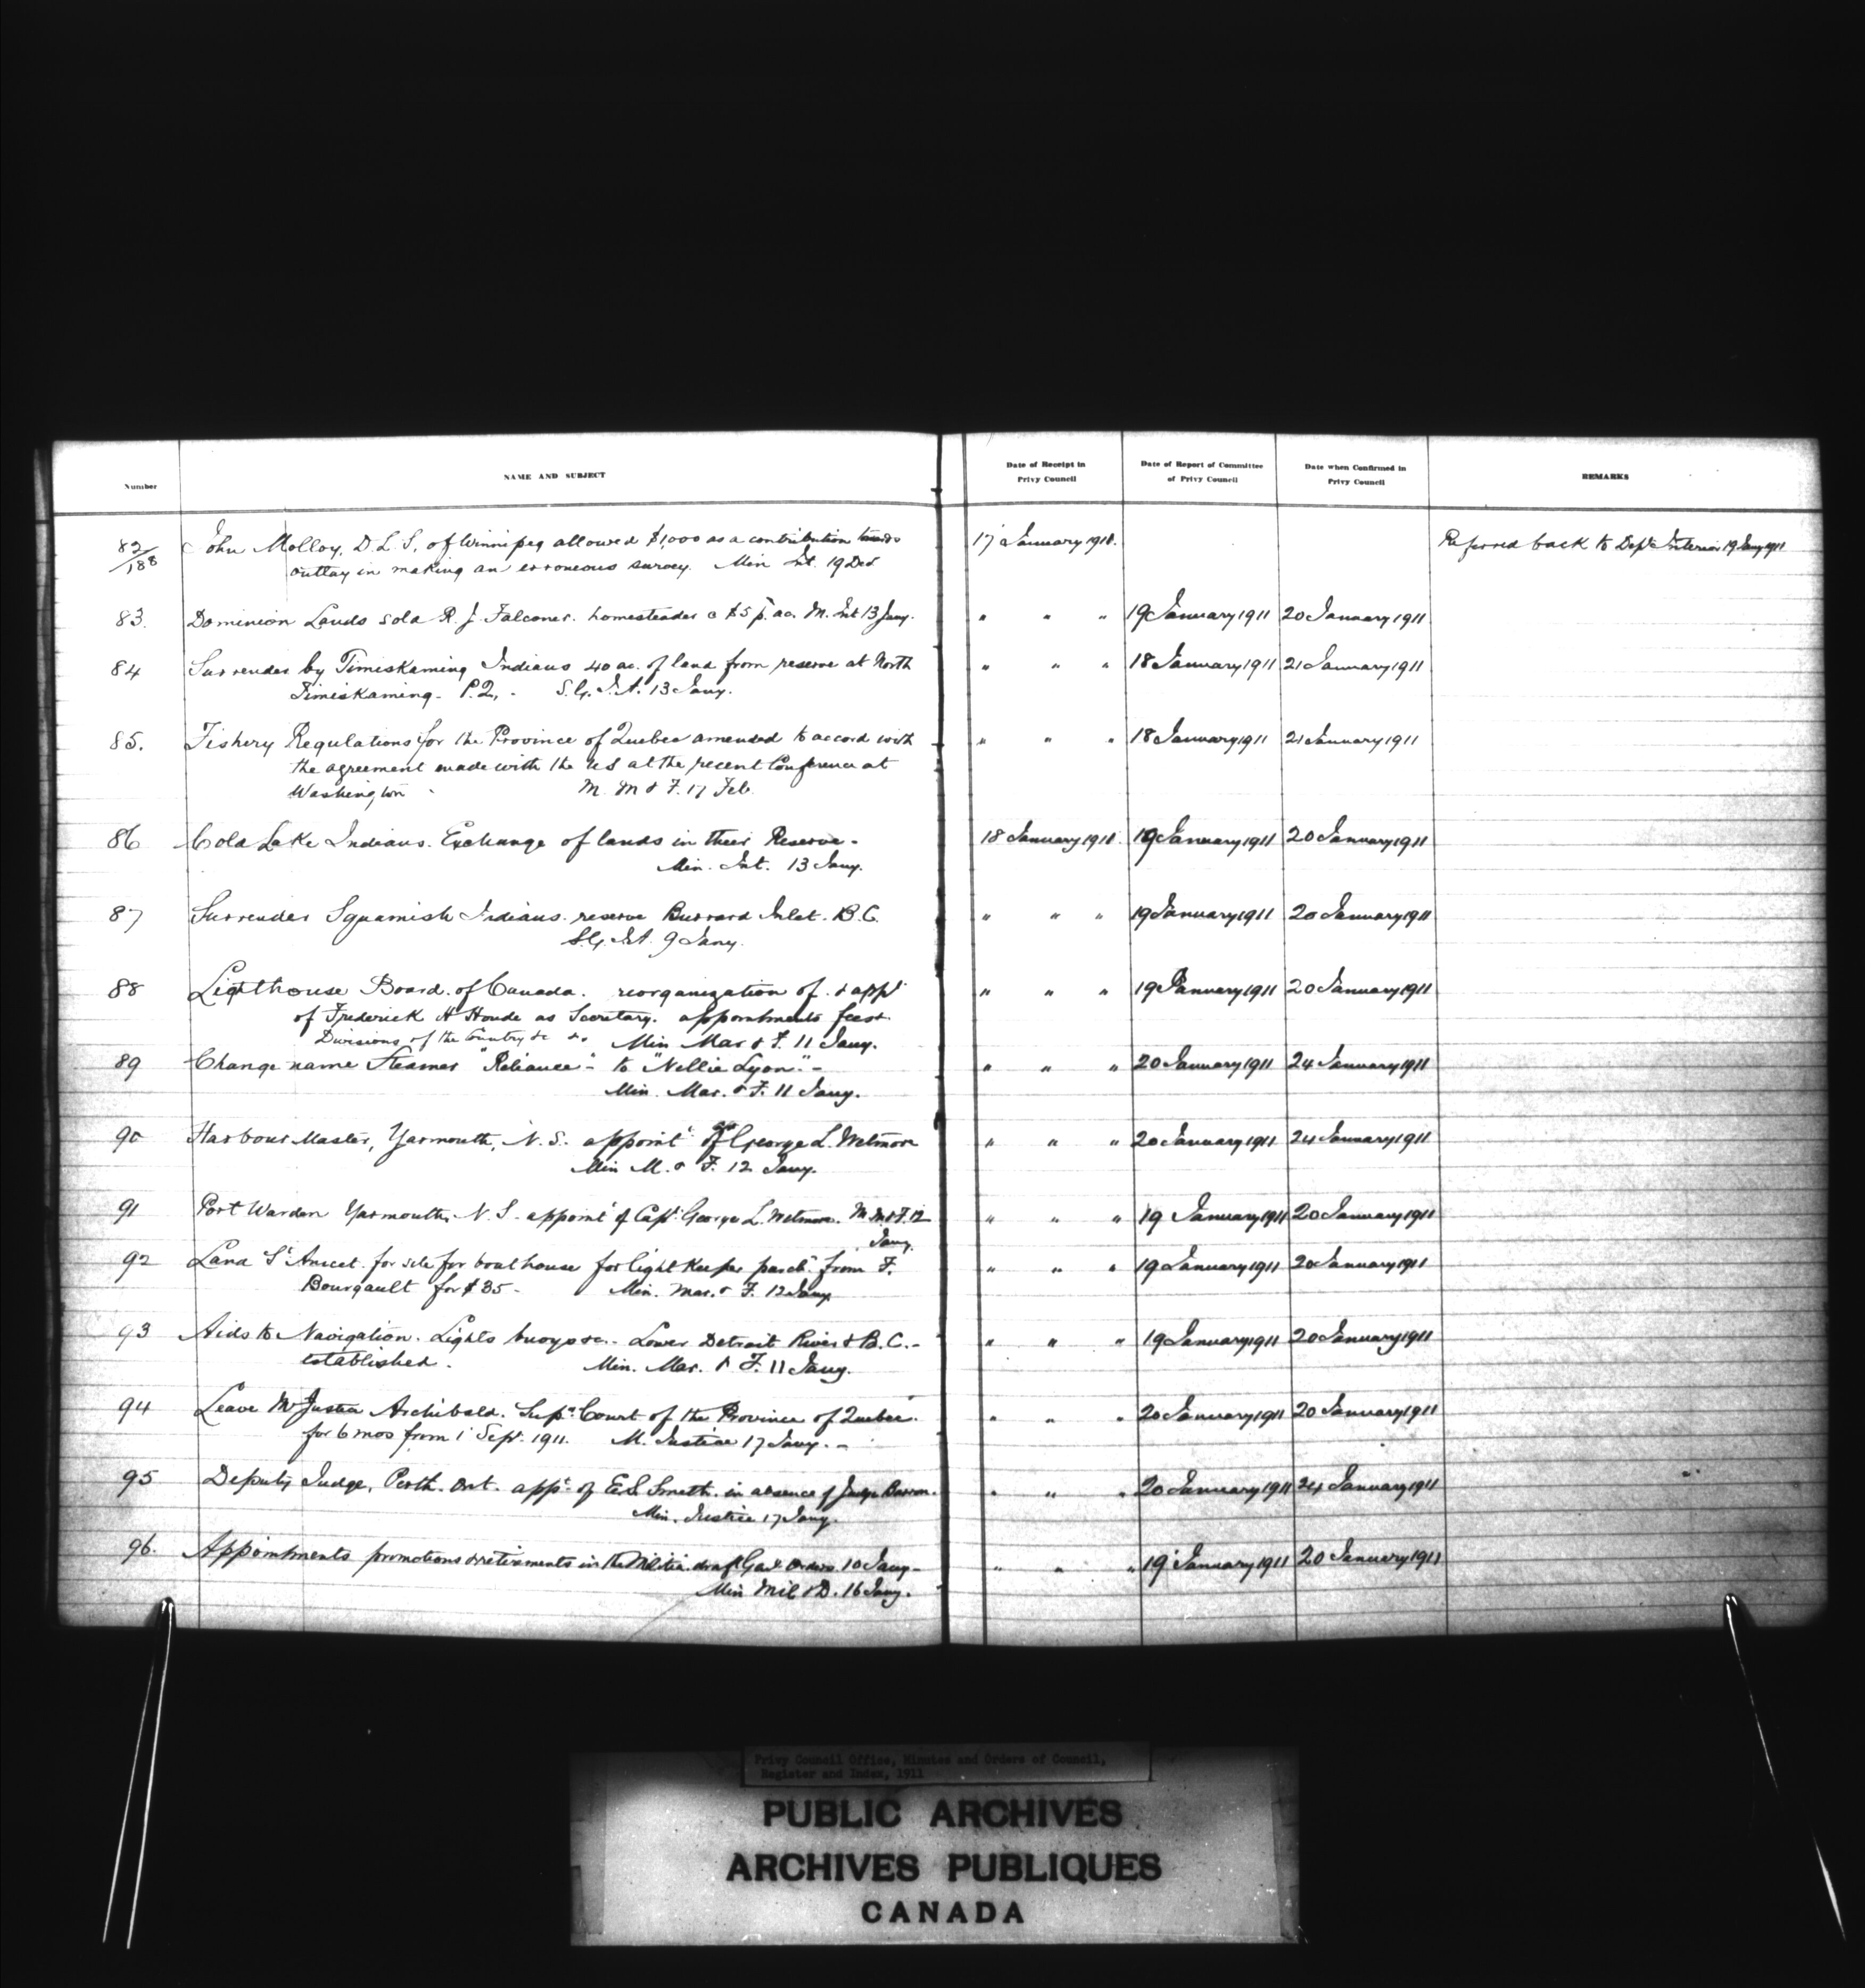 Number NAME AND SUBJECT Date of Receipt in Privy Council Date of Report of Committee of Privy Council Date when Confirmed in Privy Council REMARKS
82/188 John Molloy, D.L.S, of Winnipeg allowed $1,000 as a contribution towards 17 January 1911. Referred back to Dept Interior 19 Jany 1911
outlay in making an erroneous survey. Min Int. 19 Dec
83. Dominion Lands sold R. J. Falconer. homesteader @ $5 p. ac. M. Int 13 Jany. " " " 19 January 1911 20 January 1911
84 Surrender by Timiskaming Indians 40 ac. of land from reserve at North " " " 18 January 1911 21 January 1911
Timiskaming - P.Q. - S.G. I.A. 13 Jany.
85. Fishery Regulations for the Province of Quebec amended to accord with " " " 18 January 1911 21 January 1911
the agreement made with the US at the recent Conference at
Washington - M. M & F. 17 Feb.
86 Cold Lake Indians. Exchange of lands in their Reserve - 18 January 1911. 19 January 1911 20 January 1911
Min. Int. 13 Jany.
87 Surrender Squamish Indians. reserve Burrard Inlet. B.C. " " " 19 January 1911 20 January 1911
S.G. I.A. 9 Jany.
88 Lighthouse Board. of Canada. reorganization of. & appt " " " 19 January 1911 20 January 1911
of Frederick H Houde as Secretary. appointments fees &.
Divisions of the Country &c &c Min Mar & F. 11 Jany.
89 Change name Steamer "Reliance" - to "Nellie Lyon". - " " " 20 January 1911 24 January 1911
Min. Mar. & F. 11 Jany.
90 Harbour Master, Yarmouth, N.S. appoint of George L. Wetmore " " " 20 January 1911 24 January 1911
Min M. & F. 12 Jany.
91 Port Warden Yarmouth, N.S. appoint of Capt. George L. Wetmore. M. M & F. 12 " " " 19 January 1911 20 January 1911
Jany.
92 Land St Anicet. for site for boathouse for light Keeper purch. from F. " " " 19 January 1911 20 January 1911
Bourgault for $35 - Min. Mar. & F. 12 Jany
93 Aids to Navigation. Lights buoys &c. - Lower Detroit River & B.C. - " " " 19 January 1911 20 January 1911
established. Min. Mar. & F. 11 Jany.
94 Leave Mr Justice Archibald. Supr Court of the Province of Quebec. " " " 20 January 1911 20 January 1911
for 6 mos from 1 Sept. 1911. M. Justice 17 Jany. -
95 Deputy Judge, Perth. Ont. appt. of E.S. Smith. in absence of Judge Barron. " " " 20 January 1911 24 January 1911
Min. Justice 17 Jany.
96. Appointments promotions & retirements in the Militia. draft Genl Orders. 10 Jany - " " " 19 January 1911 20 January 1911
Min Mil & D. 16 Jany.
Privy Council Office, Minutes and Orders of Council,
Register and Index, 1911
PUBLIC ARCHIVES
ARCHIVES PUBLIQUES
CANADA